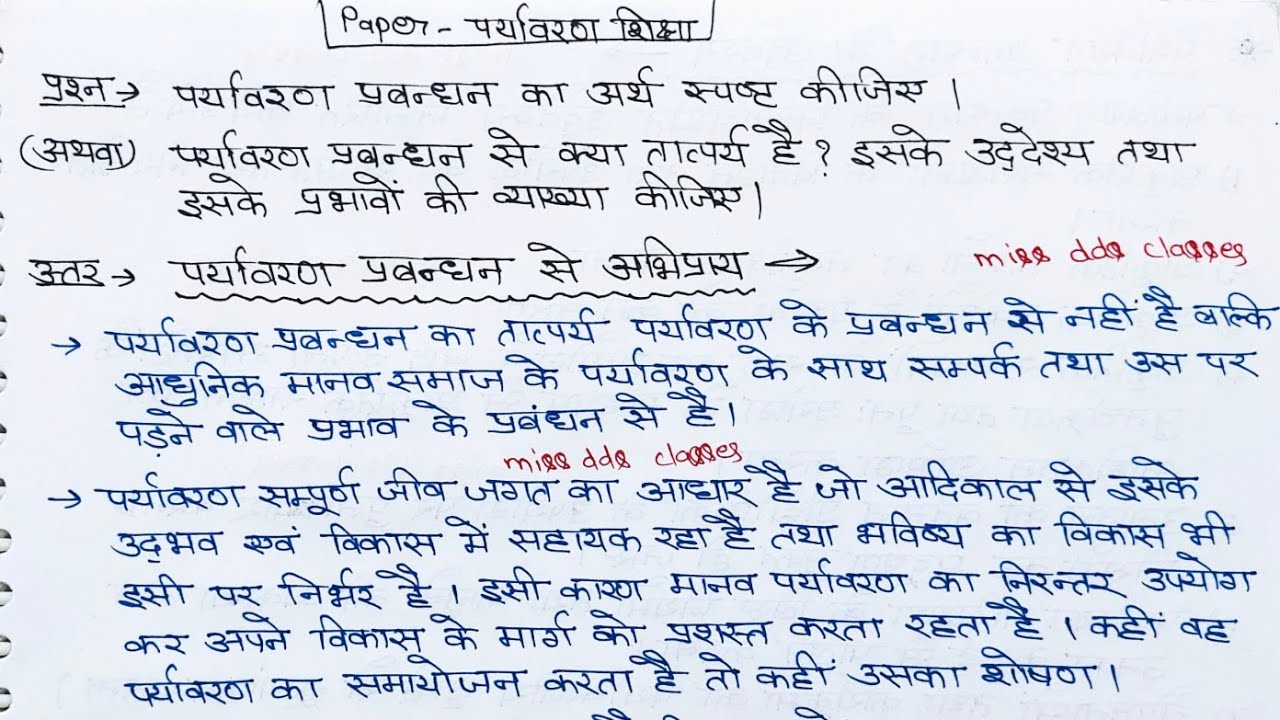 Paper - पर्यावरण शिक्षा
प्रश्न → पर्यावरण प्रबन्धन का अर्थ स्पष्ट कीजिए ।
(अथवा) पर्यावरण प्रबन्धन से क्या तात्पर्य है ? इसके उद्देश्य तथा
इसके प्रभावों की व्याख्या कीजिए ।
उत्तर → पर्यावरण प्रबन्धन से अभिप्राय →
miss dds classes
→ पर्यावरण प्रबन्धन का तात्पर्य पर्यावरण के प्रबन्धन से नहीं है बल्कि
आधुनिक मानव समाज के पर्यावरण के साथ सम्पर्क तथा उस पर
पड़ने वाले प्रभाव के प्रबंधन से है ।
miss dds classes
→ पर्यावरण सम्पूर्ण जीव जगत का आधार है जो आदिकाल से इसके
उद्भव एवं विकास में सहायक रहा है तथा भविष्य का विकास भी
इसी पर निर्भर है । इसी कारण मानव पर्यावरण का निरन्तर उपयोग
कर अपने विकास के मार्ग को प्रशस्त करता रहता है । कहीं वह
पर्यावरण का समायोजन करता है तो कहीं उसका शोषण ।